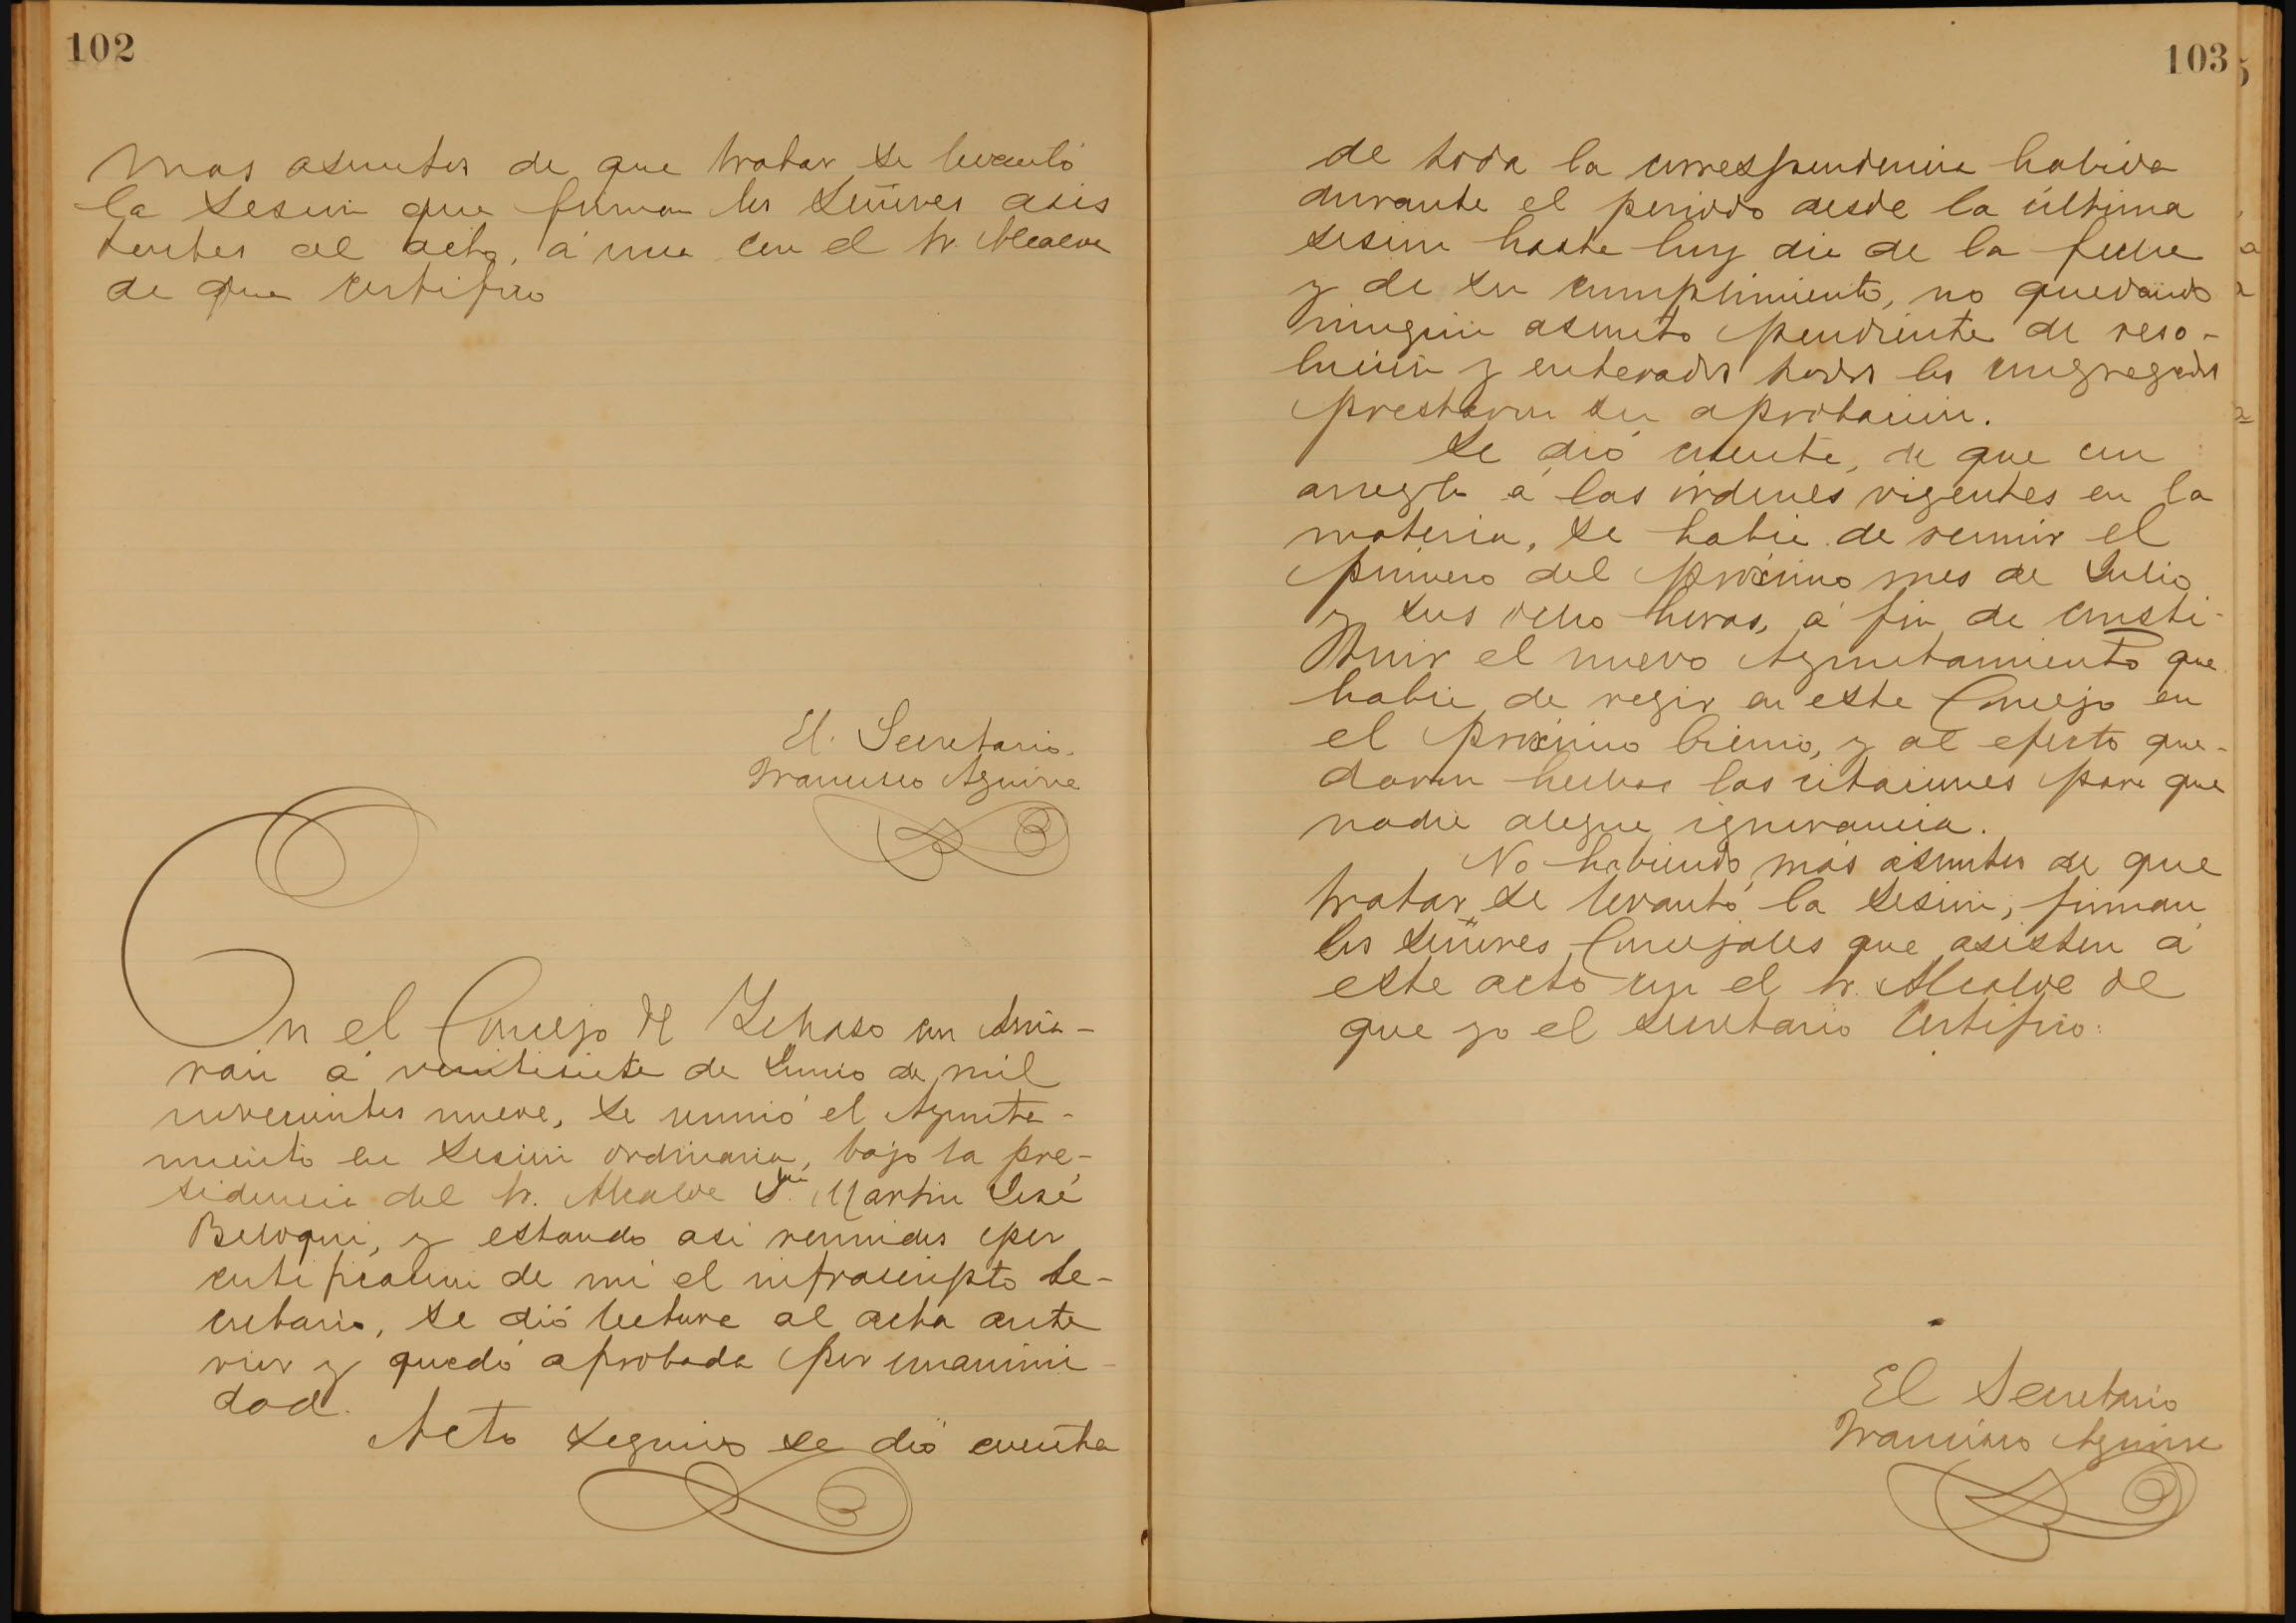 102
mas asuntos de que tratar se levantó
la sesión que firman los Señores asis
tentes al acto, á una con el Sr. Alcalde
de que certifico
El Secretario
Francisco Aguirre
En el Concejo de Lehaso con Ama-
rain á veintisiete de Junio de mil
novecientos nueve, se reunió el Ayunta-
miento en sesión ordinaria, bajo la pre-
sidencia del Sr. Alcalde Dn Martin José
Beloqui, y estando asi reunidos por
certificación de mi el infrascripto Se-
cretario, se dió lectura al acta ante
rior y quedó aprobada por unanimi-
dad.
Acto seguido se dió cuenta
103
de toda la correspondencia habida
durante el periodo desde la última
sesión hasta hoy dia de la fecha
y de su cumplimiento, no quedando
ningún asunto pendiente de reso-
lución y enterados todos los congregados
prestaron su aprobación.
Se dió cuenta, de que con
arreglo á las órdenes vigentes en la
materia, se habia de reunir el
primero del próximo mes de Julio
y sus ocho horas, á fin de consti-
tuir el nuevo Ayuntamiento que
habia de regir en este Concejo en
el próximo bienio, y al efecto que-
daron hechas las citaciones para que
nadie alegue ignorancia.
No habiendo más asuntos de que
tratar se levantó la sesión, firman
los Señores Concejales que asisten á
este acto con el Sr. Alcalde de
que yo el Secretario Certifico:
El Secretario
Francisco Aguirre